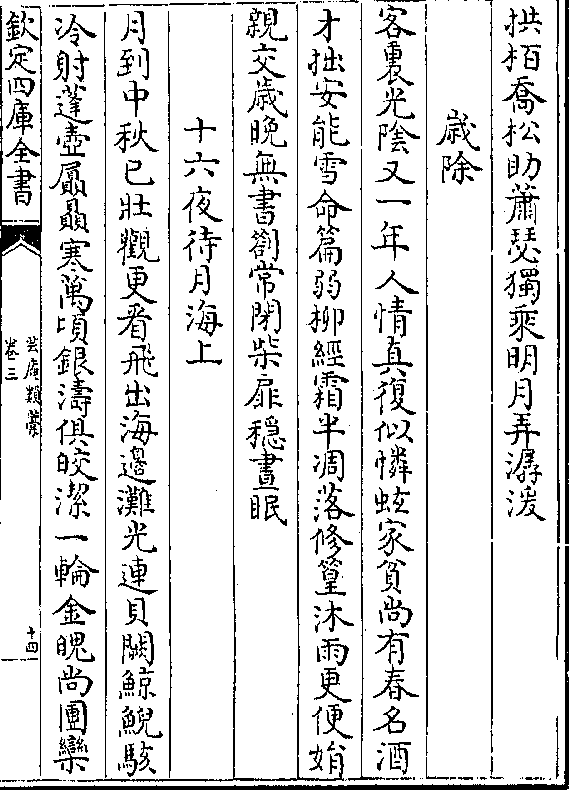 拱栢喬松助蕭瑟獨乘明月弄潺湲
歳除
客裏光陰又一年人情真復似憐蚿家貧尚有春名酒
才拙安能雪命篇弱柳經霜半凋落修篁沐雨更便娟
親交歳晚無書劄常閉柴扉穩晝眠
十六夜待月海上
月到中秋已壯觀更看飛出海邊灘光連貝闕鯨鯢駭
冷射蓬壺屭贔寒萬頃銀濤俱皎潔一輪金魄尚團欒
欽定四庫全書
芸庵類藁
卷三
十四